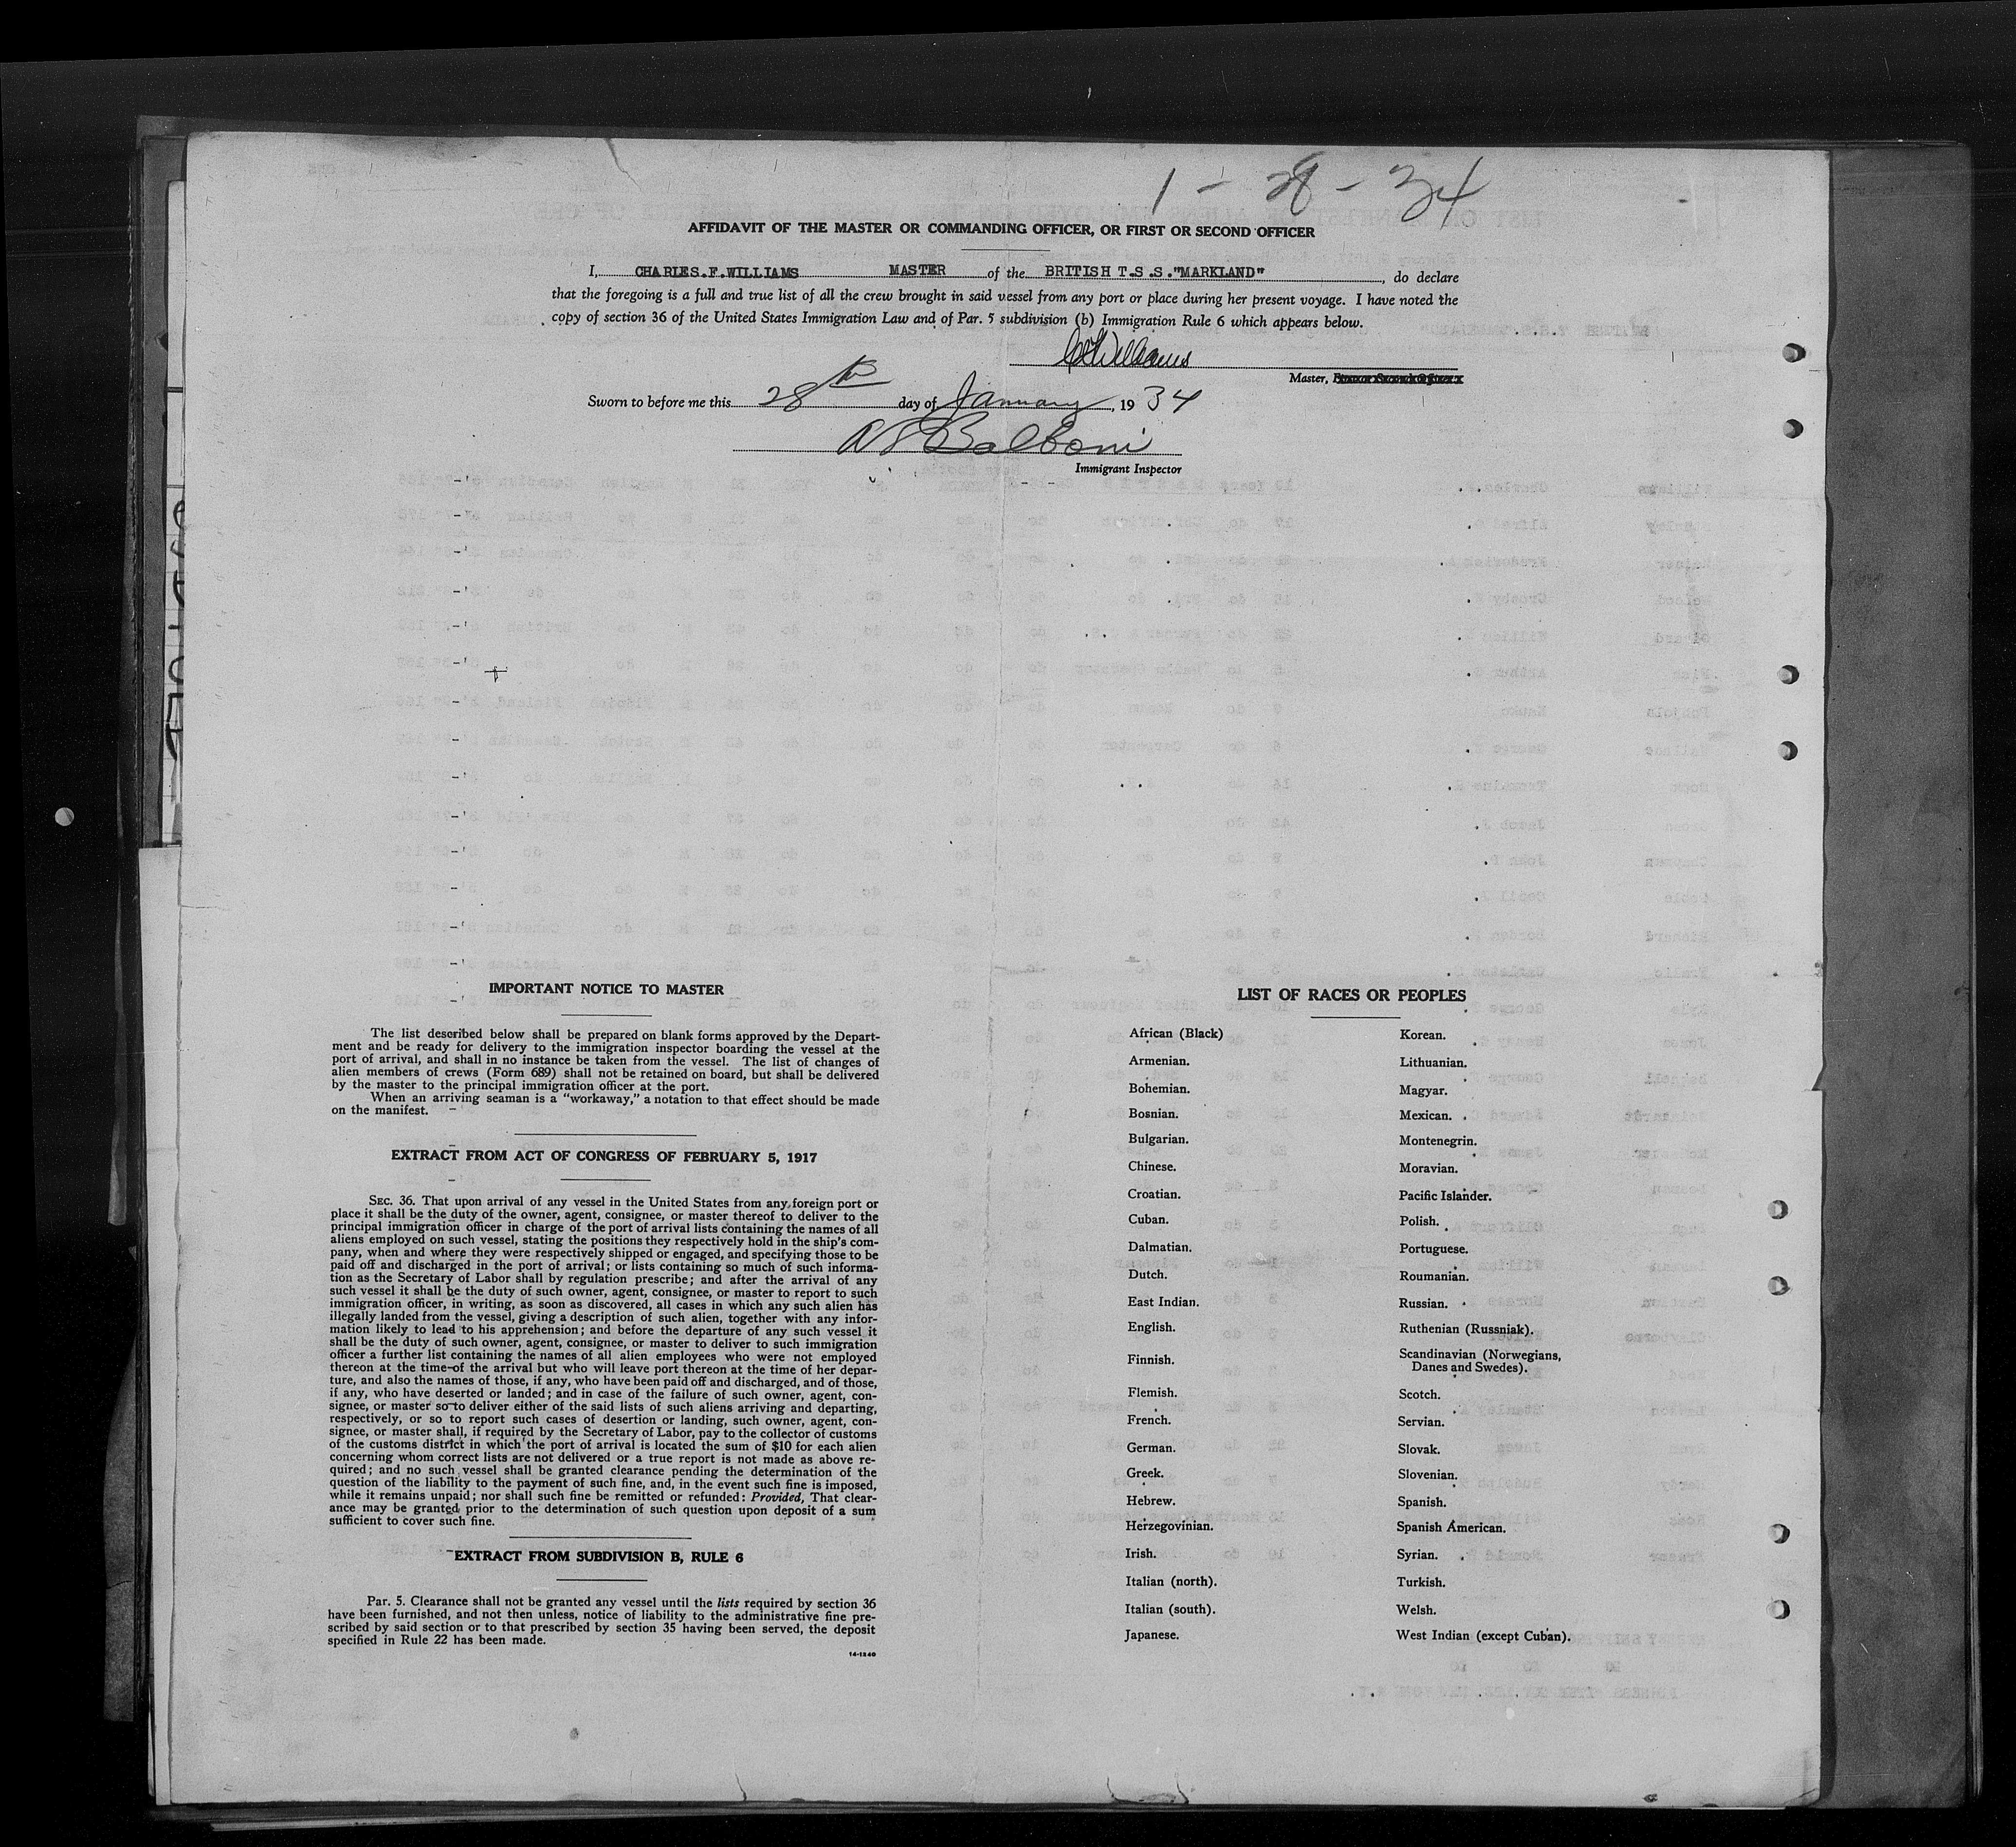 1 - 28 - 34
AFFIDAVIT OF THE MASTER OR COMMANDING OFFICER, OR FIRST OR SECOND OFFICER
I, CHARLES.F.WILLIAMS MASTER of the BRITISH T.S.S."MARKLAND", do declare
that the foregoing is a full and true list of all the crew brought in said vessel from any port or place during her present voyage. I have noted the
copy of section 36 of the United States Immigration Law and of Par. 5 subdivision (b) Immigration Rule 6 which appears below.
CFWilliams
Master,
Sworn to before me this 28th day of January, 1934
Balboni
Immigrant Inspector
IMPORTANT NOTICE TO MASTER
The list described below shall be prepared on blank forms approved by the Depart-
ment and be ready for delivery to the immigration inspector boarding the vessel at the
port of arrival, and shall in no instance be taken from the vessel. The list of changes of
alien members of crews (Form 689) shall not be retained on board, but shall be delivered
by the master to the principal immigration officer at the port.
When an arriving seaman is a "workaway," a notation to that effect should be made
on the manifest.
EXTRACT FROM ACT OF CONGRESS OF FEBRUARY 5, 1917
SEC. 36. That upon arrival of any vessel in the United States from any foreign port or
place it shall be the duty of the owner, agent, consignee, or master thereof to deliver to the
principal immigration officer in charge of the port of arrival lists containing the names of all
aliens employed on such vessel, stating the positions they respectively hold in the ship's com-
pany, when and where they were respectively shipped or engaged, and specifying those to be
paid off and discharged in the port of arrival; or lists containing so much of such informa-
tion as the Secretary of Labor shall by regulation prescribe; and after the arrival of any
such vessel it shall be the duty of such owner, agent, consignee, or master to report to such
immigration officer, in writing, as soon as discovered, all cases in which any such alien has
illegally landed from the vessel, giving a description of such alien, together with any infor-
mation likely to lead to his apprehension; and before the departure of any such vessel it
shall be the duty of such owner, agent, consignee, or master to deliver to such immigration
officer a further list containing the names of all alien employees who were not employed
thereon at the time of the arrival but who will leave port thereon at the time of her depar-
ture, and also the names of those, if any, who have been paid off and discharged, and of those,
if any, who have deserted or landed; and in case of the failure of such owner, agent, con-
signee, or master so to deliver either of the said lists of such aliens arriving and departing,
respectively, or so to report such cases of desertion or landing, such owner, agent, con-
signee, or master shall, if required by the Secretary of Labor, pay to the collector of customs
of the customs district in which the port of arrival is located the sum of $10 for each alien
concerning whom correct lists are not delivered or a true report is not made as above re-
quired; and no such vessel shall be granted clearance pending the determination of the
question of the liability to the payment of such fine, and, in the event such fine is imposed,
while it remains unpaid; nor shall such fine be remitted or refunded: Provided, That clear-
ance may be granted prior to the determination of such question upon deposit of a sum
sufficient to cover such fine.
EXTRACT FROM SUBDIVISION B, RULE 6
Par. 5. Clearance shall not be granted any vessel until the lists required by section 36
have been furnished, and not then unless, notice of liability to the administrative fine pre-
scribed by said section or to that prescribed by section 35 having been served, the deposit
specified in Rule 22 has been made.
14-1240
LIST OF RACES OR PEOPLES
African (Black)
Armenian.
Bohemian.
Bosnian.
Bulgarian.
Chinese.
Croatian.
Cuban.
Dalmatian.
Dutch.
East Indian.
English.
Finnish.
Flemish.
French.
German.
Greek.
Hebrew.
Herzegovinian.
Irish.
Italian (north).
Italian (south).
Japanese.
Korean.
Lithuanian.
Magyar.
Mexican.
Montenegrin.
Moravian.
Pacific Islander.
Polish.
Portuguese.
Roumanian.
Russian.
Ruthenian (Russniak).
Scandinavian (Norwegians,
Danes and Swedes).
Scotch.
Servian.
Slovak.
Slovenian.
Spanish.
Spanish American.
Syrian.
Turkish.
Welsh.
West Indian (except Cuban).